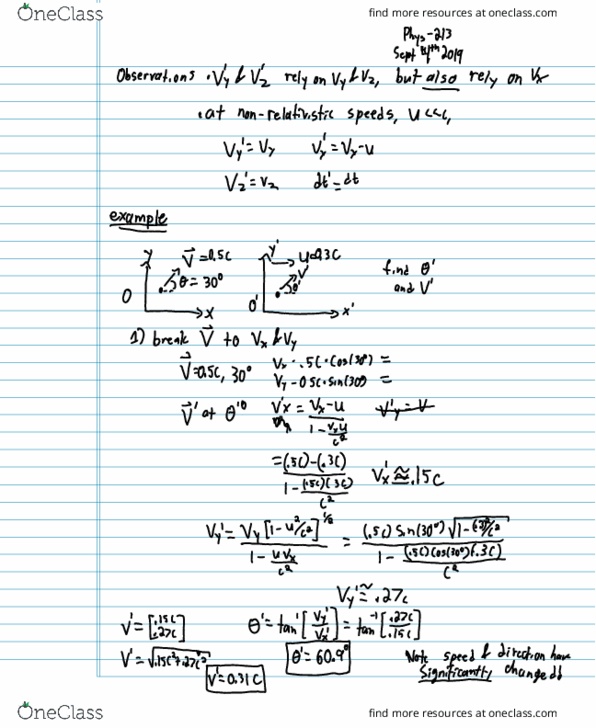 OneClass
find more resources at oneclass.com
Phys-213
Sept 4th 2019
Observations • Vy' & Vz' rely on Vy & Vz, but also rely on Vx
• at non-relativistic speeds, u <<c,
Vy' = Vy    Vx' = Vx-u
Vz' = Vz    dt' = dt
example
y    V = 0.5c    y'    u=0.3c
θ = 30°    V'    θ'    find θ'
and V'
O    x    O'    x'
1) break V to Vx & Vy
V=0.5c, 30°    Vx = .5c·cos(30°) =
Vy = 0.5c·sin(30°) =
V' at θ'°    V'x = Vx-u / 1 - Vxu/c²    V'y = V
= (.5c)-(.3c) / 1 - (.5c)(.3c)/c²    Vx' ≈ .15c
Vy' = Vy [1-u²/c²]^1/2 / 1 - uVx/c² = (.5c) sin(30°) √1-(.3c)²/c² / 1 - (.5c)cos(30°)(.3c)/c²
Vy' ≈ .27c
V' = [.15c .27c]    θ' = tan⁻¹[Vy'/Vx'] = tan⁻¹[.27c/.15c]
V' = √.15c²+.27c²    θ' = 60.9°    Note speed & direction have
V' = 0.31c    Significantly changed
OneClass
find more resources at oneclass.com